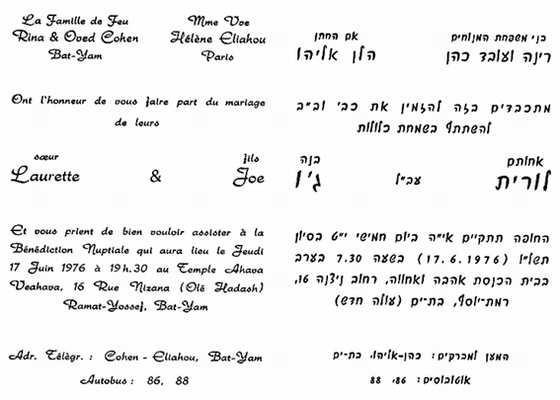 La Famille de Feu
Rina & Oved Cohen
Bat-Yam
Mme Vve
Hélène Eliahou
Paris
Ont l'honneur de vous faire part du mariage
de leurs
sœur
Laurette
&
fils
Joe
Et vous prient de bien vouloir assister à la
Bénédiction Nuptiale qui aura lieu le Jeudi
17 Juin 1976 à 19 h.30 au Temple Ahava
Veahava, 16 Rue Nizana (Olé Hadash)
Ramat-Yossef, Bat-Yam
Adr. Télègr. : Cohen - Eliahou, Bat-Yam
Autobus : 86, 88
בני משפחת המנוחים
רינה ועובד כהן
אם החתן
הלן אליהו
מתכבדים בזה להזמין את כב' וב"ב
להשתתף בשמחת כלולות
אחותם
לורית
עב"ל
בנה
ג'ו
החופה תתקיים אי"ה ביום חמישי י"ט בסיון
תשל"ו (17.6.1976) בשעה 7.30 בערב
בבית הכנסת אהבה ואחווה, רחוב ניצנה 16,
רמת-יוסף, בת-ים (עולה חדש)
המען למברקים: כהן-אליהו, בת-ים
אוטובוסים: 86, 88